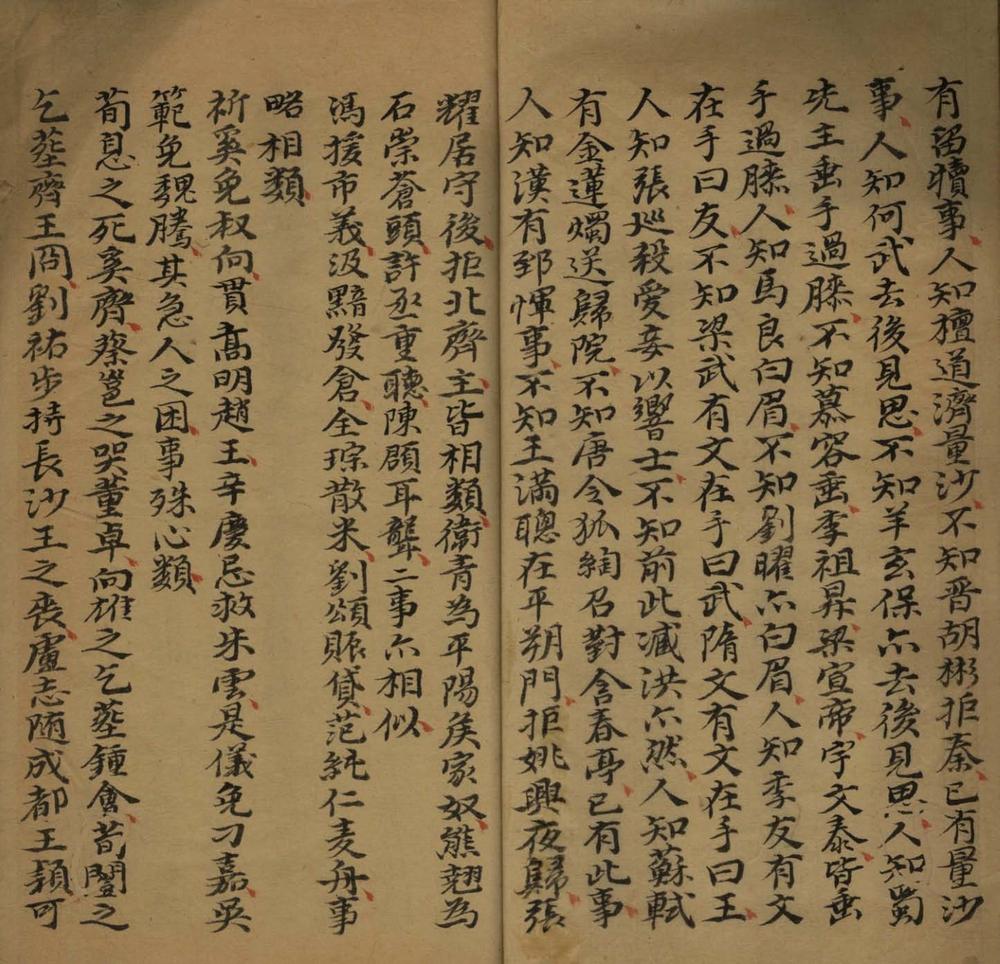 有留犢事、人知檀道濟量沙、不知晋胡彬拒秦、已有量沙
事、人知何武去後見思、不知羊玄保亦去後見思、人知蜀
先主垂手過膝、不知慕容垂、李祖昇、梁宣帝、宇文泰、皆垂
手過膝、人知馬良白眉、不知劉曜亦白眉、人知季友有文
在手曰友、不知梁武有文在手曰武、隋文有文在手曰王、
人知張巡殺愛妾以饗士、不知前此臧洪亦然、人知蘇軾
有金蓮燭送歸院、不知唐令狐綯召對含春亭、已有此事、
人知漢有郅惲事、不知王滿聰在平朔門、拒姚興夜歸、張
耀居守後、拒北齊主、皆相類、衛青為平陽矦家奴、熊翹為
石崇蒼頭、許丞重聽、陳頎耳聾、二事亦相似、
馮援市義、汲黯發倉、全琮散米、劉頌賑貸、范純仁麦舟、事
略相類、
祈奚免叔向、貫高明趙王、辛慶忌救朱雲、是儀免刁嘉、吳
範免魏騰、其急人之困、事殊心類、
荀息之死奚齊、蔡邕之哭董卓、向雄之乞塟鍾會、荀闓之
乞塟齊王冏、劉祐步持長沙王之喪、盧志随成都王穎、可